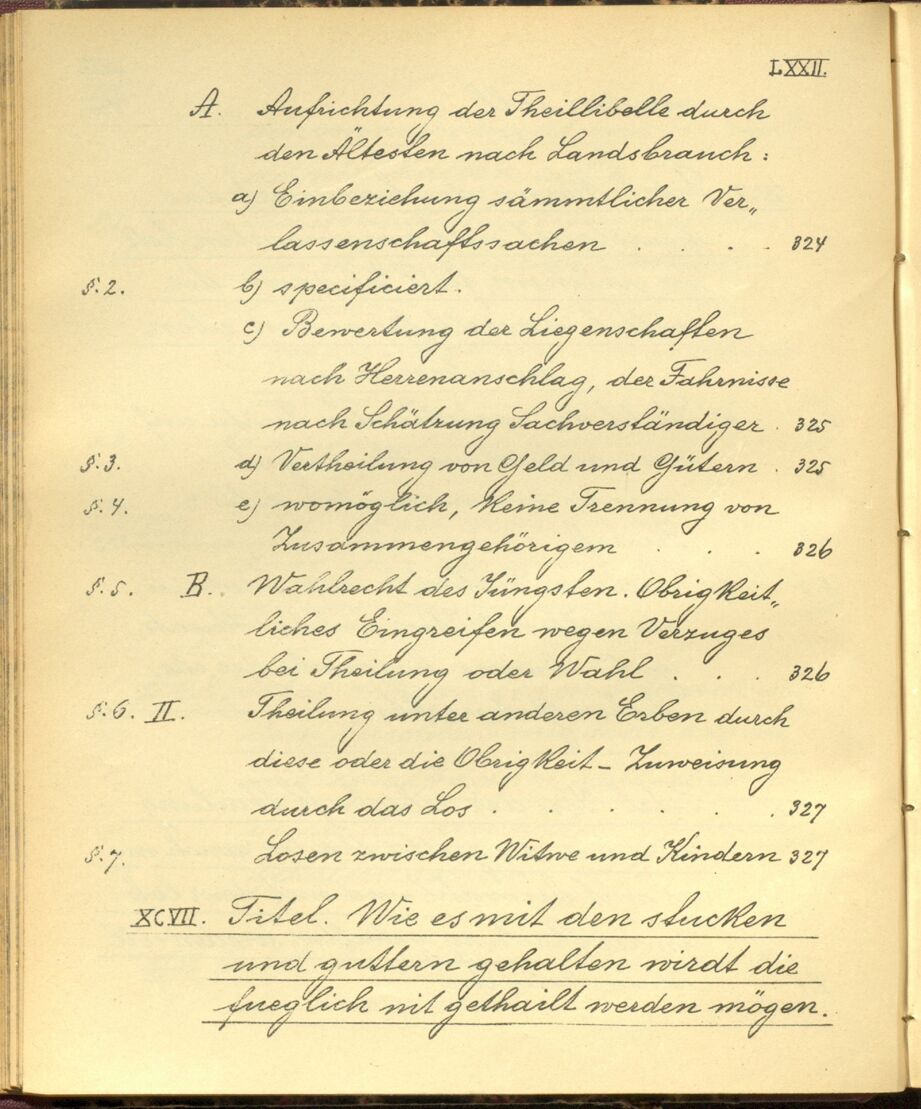 LXXII.
A. Aufrichtung der Theillibelle durch
den Ältesten nach Landsbrauch:
a) Einbeziehung sämmtlicher Ver„
lassenschaftssachen . . . . 324
§. 2. b) specificiert.
c) Bewertung der Liegenschaften
nach Herrenanschlag, der Fahrnisse
nach Schätzung Sachverständiger . 325
§. 3. d) Vertheilung von Geld und Gütern . 325
§. 4. e) womöglich, keine Trennung von
Zusammengehörigem . . . 326
§. 5. B. Wahlrecht des Jüngsten. Obrigkeit„
liches Eingreifen wegen Verzuges
bei Theilung oder Wahl . . . 326
§. 6. II. Theilung unter anderen Erben durch
diese oder die Obrigkeit – Zuweisung
durch das Los . . . . . . 327
§. 7. Losen zwischen Witwe und Kindern 327
XCVII. Titel. Wie es mit den stucken
und guttern gehalten wirdt die
fueglich nit gethailt werden mögen.